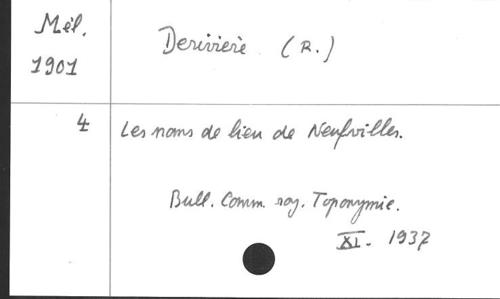 Mél.
1901
Derivière (R.)
4
Les noms de lieu de Neufvilles.
Bull. Comm. roy. Toponymie.
XI. 1937